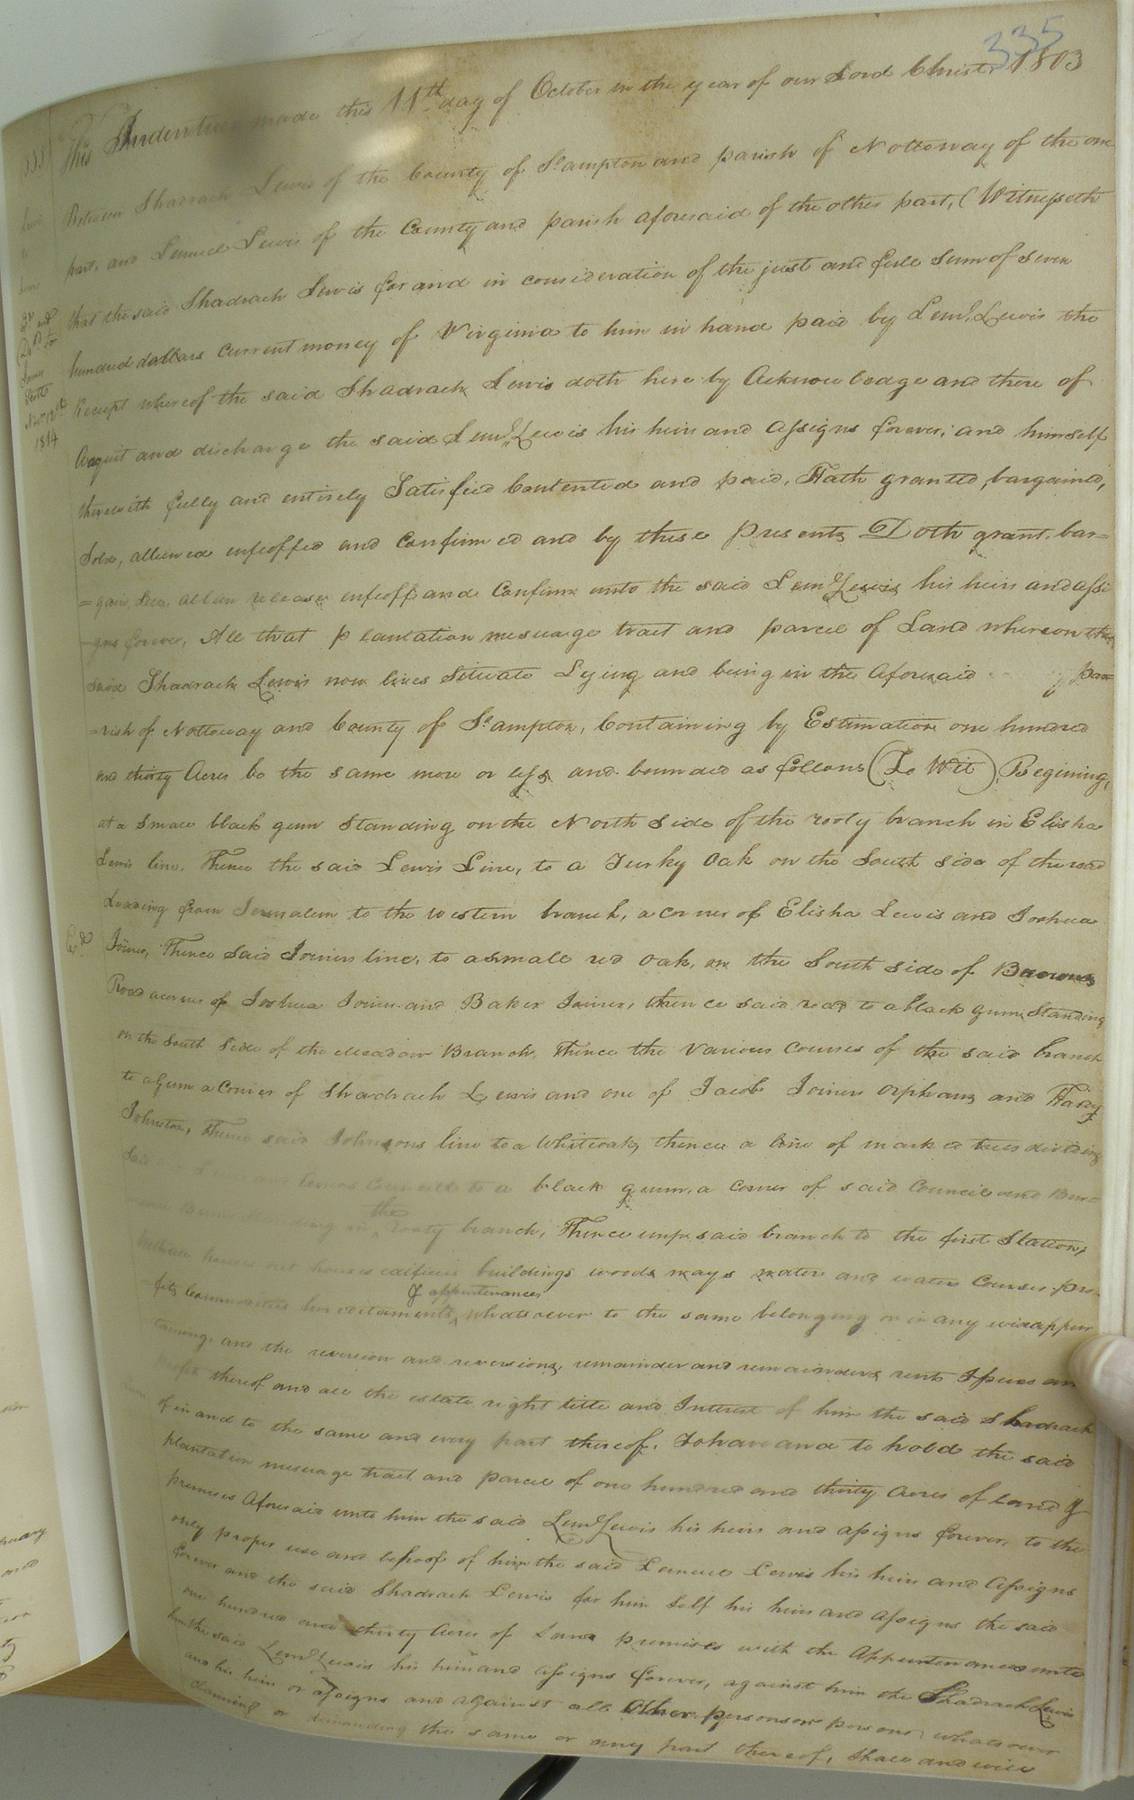 335
This Indenture made this 11th day of October in the year of our Lord Christ 1803
Between Shadrach Lewis of the County of S.ampton and parish of Nottoway of the one
part, and Lemuel Lewis of the County and parish aforesaid of the other part, (Witnesseth
that the said Shadrach Lewis for and in consideration of the just and full Sum of Seven
hundred dollars current money of Virginia to him in hand paid by Leml. Lewis the
Receipt whereof the said Shadrach Lewis doth here by Acknowledge and there of
Acquit and discharge the said Leml. Lewis his heirs and assigns forever, and himself
therewith fully and entirely Satisfied Contented and paid, Hath granted, bargained,
Sold, aliened enfeoffed and Confirmed and by these presents Doth grant. bar=
=gain, Sell, alien release enfeoff and Confirm unto the said Leml Lewis his heirs and assi
=gns forever, All that plantation mesuage tract and parcel of Land whereon the
said Shadrach Lewis now lives Situate Lying and being in the Aforesaid pa=
=rish of Nottoway and County of S.ampton, Containing by Estimation one hundred
and thirty Acres be the same more or less and bounded as follows (To Wit) Begining,
at a Small black gum Standing on the North Side of the rooty branch in Elisha
Lewis line, Thence the said Lewis Line, to a Turky Oak on the South side of the road
Leading from Jerusalem to the western branch, a corner of Elisha Lewis and Joshua
Joiner, Thence Said Joiners line, to a small red Oak, on the South side of
Road a corner of Joshua Joiner and Baker Joiner, thence said road to a black gum Standing
on the South Side of the Meadow Branch, Thence the Various Courses of the said branch
to a Gum a Corner of Shadrach Lewis and one of Jacob Joiners Orphans and Hardy
Johnston, Thence said Johnsons line to a White oak, thence a line of marked trees dividing
Said to a black gum, a corner of said Council and
Standing in the rooty branch, Thence up said branch to the first Station,
houses out houses edifices buildings woods ways waters and water Courses pro=
=fits & appurtenances whatsoever to the same belonging or in any wise apper
taining, and the reversion and reversions, remainder and remainders rents Issues and
thereof and all the estate right title and Interest of him the said Shadrach
of in and to the same and every part thereof. To have and to hold the said
plantation mesuage tract and parcel of one hundred and thirty Acres of Land &
premises Aforesaid unto him the said Leml. Lewis his heirs and assigns forever, to the
only proper use and behoof of him the said Lemuel Lewis his heirs and Assigns
forever and the said Shadrach Lewis for him Self his heirs and Assigns the said
one hundred and thirty Acres of Land premises with the Appurtenances unto
him the said Leml Lewis his heirs and assigns forever, against him the Shadrach Lewis
and his heirs or assigns and against all other person or persons whatsoever
claiming or demanding the same or any part thereof, Shall and will